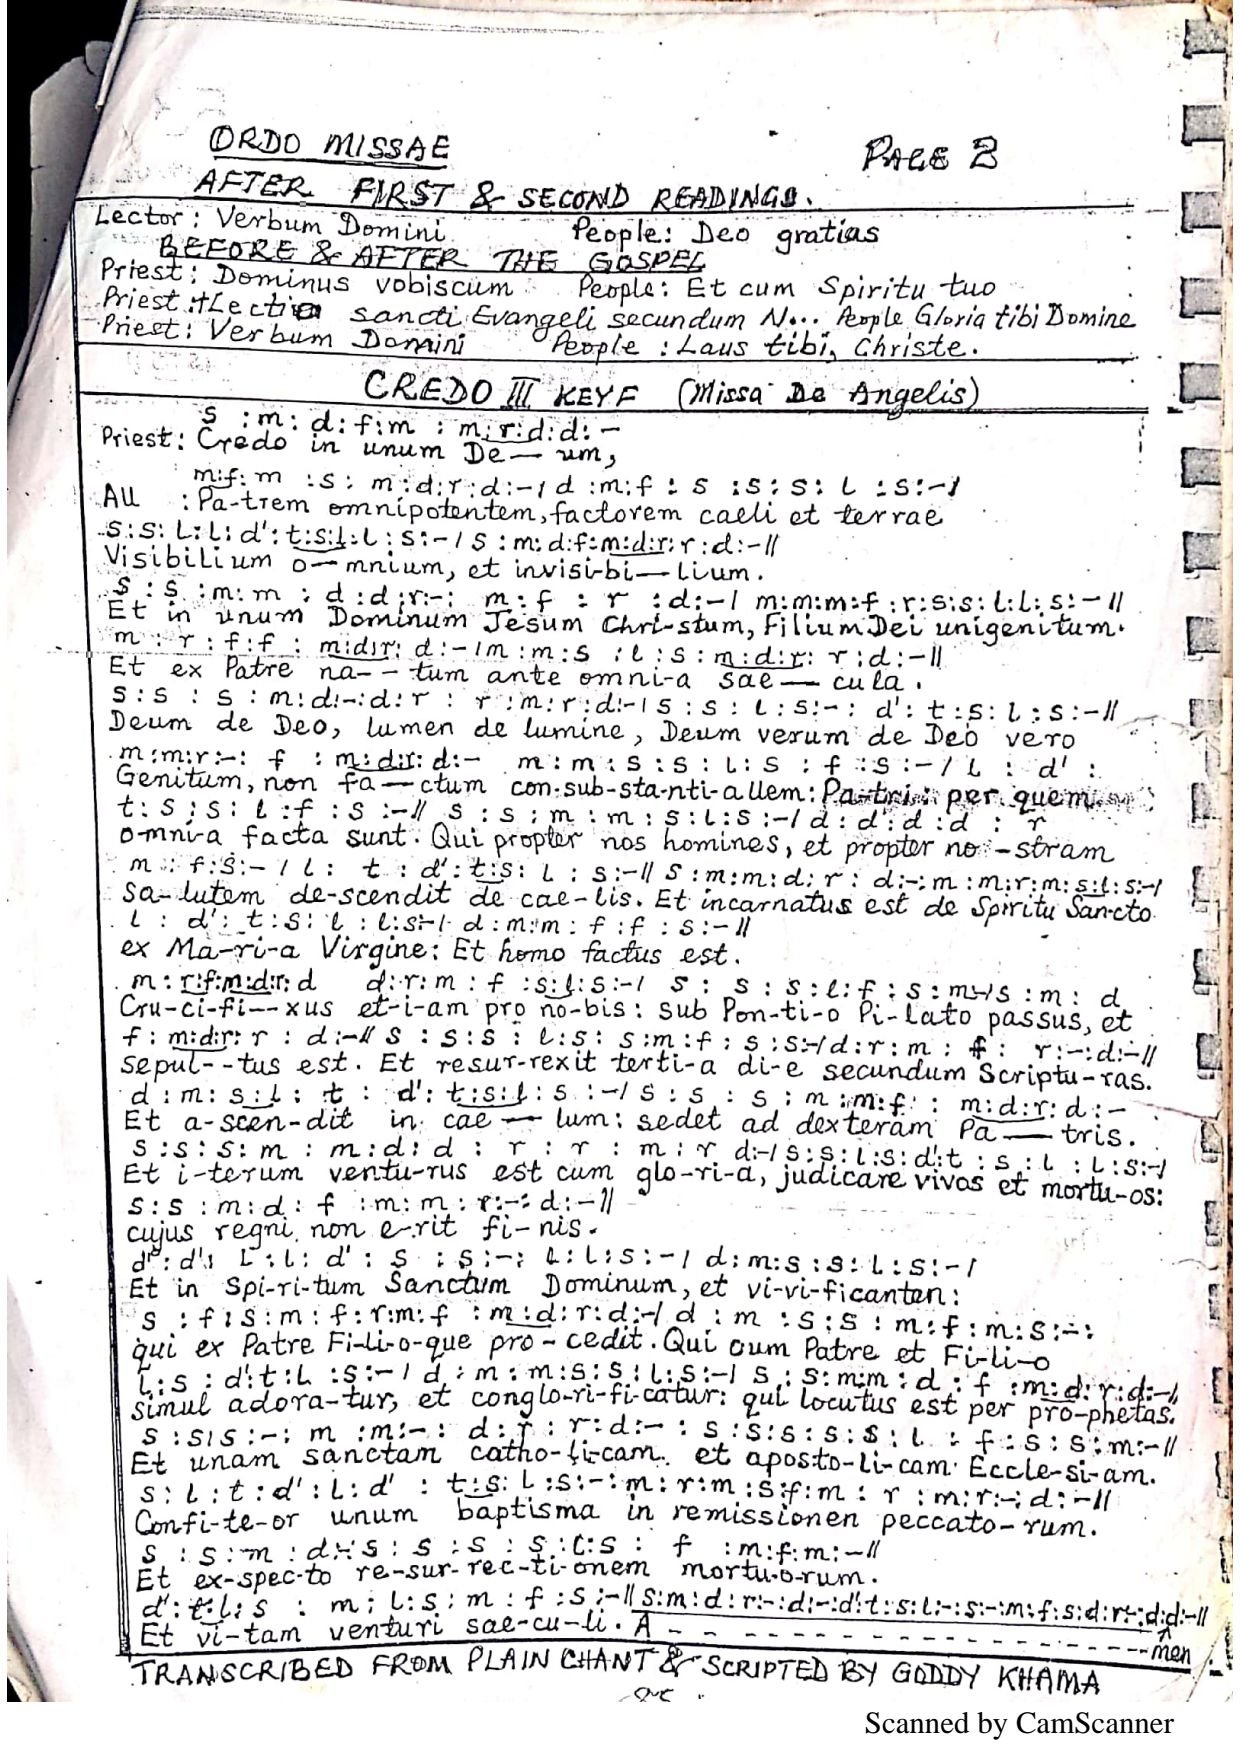 ORDO MISSAE
PAGE 2
AFTER FIRST & SECOND READINGS.
Lector: Verbum Domini People: Deo gratias
BEFORE & AFTER THE GOSPEL
Priest: Dominus vobiscum People: Et cum Spiritu tuo
Priest: +Lectio sancti Evangeli secundum N... People Gloria tibi Domine
Priest: Verbum Domini People: Laus tibi, Christe.
CREDO III KEY F (Missa De Angelis)
s : m : d : f : m : m : r : d : d : –
Priest: Credo in unum De — um,
m : f : m : s : m : d : r : d : – / d : m : f : s : s : s : l : s : – /
All : Pa-trem omnipotentem, factorem caeli et terrae
s : s : l : l : d' : t : s : l : l : s : – / s : m : d : f : m : d : r : r : d : – //
Visibilium o — mnium, et invisi-bi — lium.
s : s : m : m : d : d : r : – : m : f : r : d : – / m : m : m : f : r : s : s : l : l : s : – //
Et in unum Dominum Jesum Chri-stum, Filium Dei unigenitum.
m : r : f : f : m : d : r : d : – / m : m : s : l : s : m : d : r : r : d : – //
Et ex Patre na - - tum ante omni-a sae — cula.
s : s : s : m : d : – : d : r : r : m : r : d : – / s : s : l : s : – : d' : t : s : l : s : – //
Deum de Deo, lumen de lumine, Deum verum de Deo vero
m : m : r : – : f : m : d : r : d : – m : m : s : s : l : s : f : s : – / l : d' :
Genitum, non fa — ctum con-sub-sta-nti-allem: Pa-tri: per quem
t : s : s : l : f : s : – // s : s : m : m : s : l : s : – / d : d : d : d : r
o-mni-a facta sunt. Qui propter nos homines, et propter no-stram
m : f : s : – / l : t : d' : t : s : l : s : – // s : m : m : d : r : d : – : m : m : r : m : s : l : s : – /
Sa-lutem de-scendit de cae-lis. Et incarnatus est de Spiritu Sancto
l : d' : t : s : l : l : s : – / d : m : m : f : f : s : – //
ex Ma-ri-a Virgine: Et homo factus est.
m : r : f : m : d : r : d d : r : m : f : s : l : s : – / s : s : s : l : f : s : m : – / s : m : d
Cru-ci-fi — xus et-i-am pro no-bis: sub Pon-ti-o Pi-lato passus, et
f : m : d : r : r : d : – // s : s : s : l : s : s : m : f : s : s : – / d : r : m : f : r : – : d : – //
sepul - - tus est. Et resur-rexit terti-a di-e secundum Scriptu-ras.
d : m : s : l : t : d' : t : s : l : s : – / s : s : s : m : m : f : m : d : r : d : –
Et a-scen-dit in cae — lum: sedet ad dexteram Pa — tris.
s : s : s : m : m : d : d : r : r : m : r d : – / s : s : l : s : d' : t : s : l : l : s : – /
Et i-terum ventu-rus est cum glo-ri-a, judicare vivos et mortu-os:
s : s : m : d : f : m : m : r : – : d : – //
cujus regni non e-rit fi-nis.
d' : d' : l : l : d' : s : s : – : l : l : s : – / d : m : s : s : l : s : – /
Et in Spi-ri-tum Sanctum Dominum, et vi-vi-ficanten:
s : f : s : m : f : r : m : f : m : d : r : d : – / d : m : s : s : m : f : m : s : – :
qui ex Patre Fi-li-o-que pro-cedit. Qui cum Patre et Fi-li-o
l : s : d' : t : l : s : – / d : m : m : s : s : l : s : – / s : s : m : m : d : f : m : d : r : d : – //
simul adora-tur, et conglo-ri-fi-catur: qui locutus est per pro-phetas.
s : s : s : – : m : m : – : d : r : r : d : – : s : s : s : s : s : l : f : s : s : m : – //
Et unam sanctam catho-li-cam et aposto-li-cam Eccle-si-am.
s : l : t : d' : l : d' : t : s : l : s : – : m : r : m : s : f : m : r : m : r : – : d : – //
Confi-te-or unum baptisma in remissionen peccato-rum.
s : s : m : d : – : s : s : s : s : l : s : f : m : f : m : – //
Et ex-spec-to re-sur-rec-ti-onem mortu-o-rum.
d' : t : l : s : m : l : s : m : f : s : – // s : m : d : r : – : d : – : d' : t : s : l : – : s : – : m : f : s : d : r : – : d : d : – //
Et vi-tam venturi sae-cu-li. A - - - - - - - - - - - - - - - men
TRANSCRIBED FROM PLAIN CHANT & SCRIPTED BY GODDY KHAMA
Scanned by CamScanner